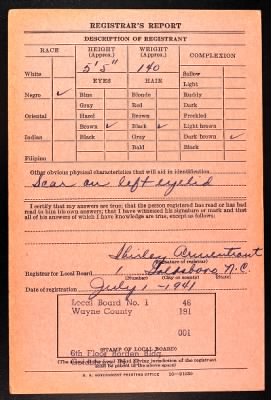 REGISTRAR'S REPORT
DESCRIPTION OF REGISTRANT
RACE
HEIGHT (Approx.)
WEIGHT (Approx.)
COMPLEXION
5' 5"
140
White
EYES
HAIR
Sallow
Light
Negro ✓
Blue
Blonde
Ruddy
Gray
Red
Dark
Oriental
Hazel
Brown
Freckled
Brown ✓
Black ✓
Light brown
Indian
Black
Gray
Dark brown ✓
Bald
Black
Filipino
Other obvious physical characteristics that will aid in identification
Scar on left eyelid
I certify that my answers are true; that the person registered has read or has had
read to him his own answers; that I have witnessed his signature or mark and that
all of his answers of which I have knowledge are true, except as follows:
Shirley Armentrout
(Signature of registrar)
Registrar for Local Board 1 Goldsboro N.C.
(Number) (City or county) (State)
Date of registration July 1 - 1941
Local Board No. 1 46
Wayne County 191
001
(STAMP OF LOCAL BOARD)
6th Floor Borden Bldg.
(The stamp of the Local Board having jurisdiction of the registrant
shall be placed in the above space)
U. S. GOVERNMENT PRINTING OFFICE